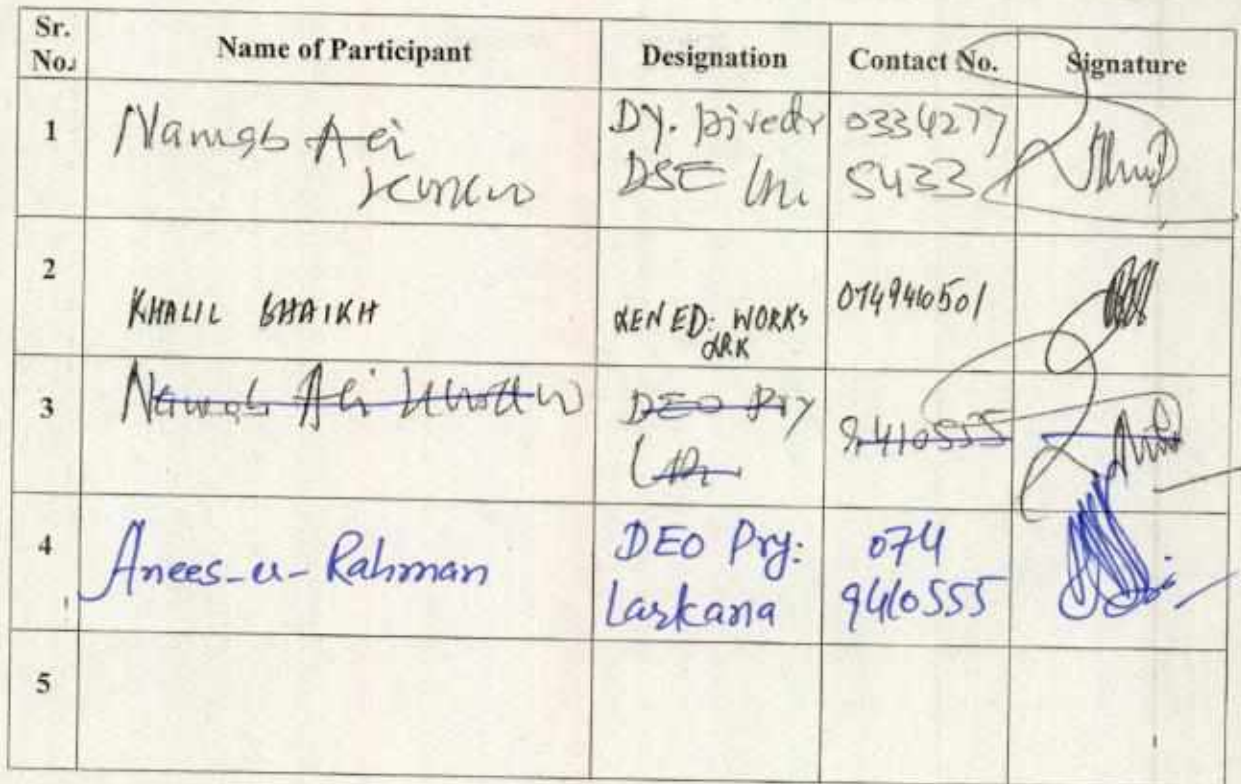 Sr. No. Name of Participant Designation Contact No. Signature
1 Nawab Ali Dy. Director 0334277
DSE 5433
2 KHALIL SHAIKH XEN ED: WORKS 0749410501
LRK
3 Nawab Ali DEO Pry 9410555
4 Anees-u-Rahman DEO Pry: 074
Larkana 9410555
5